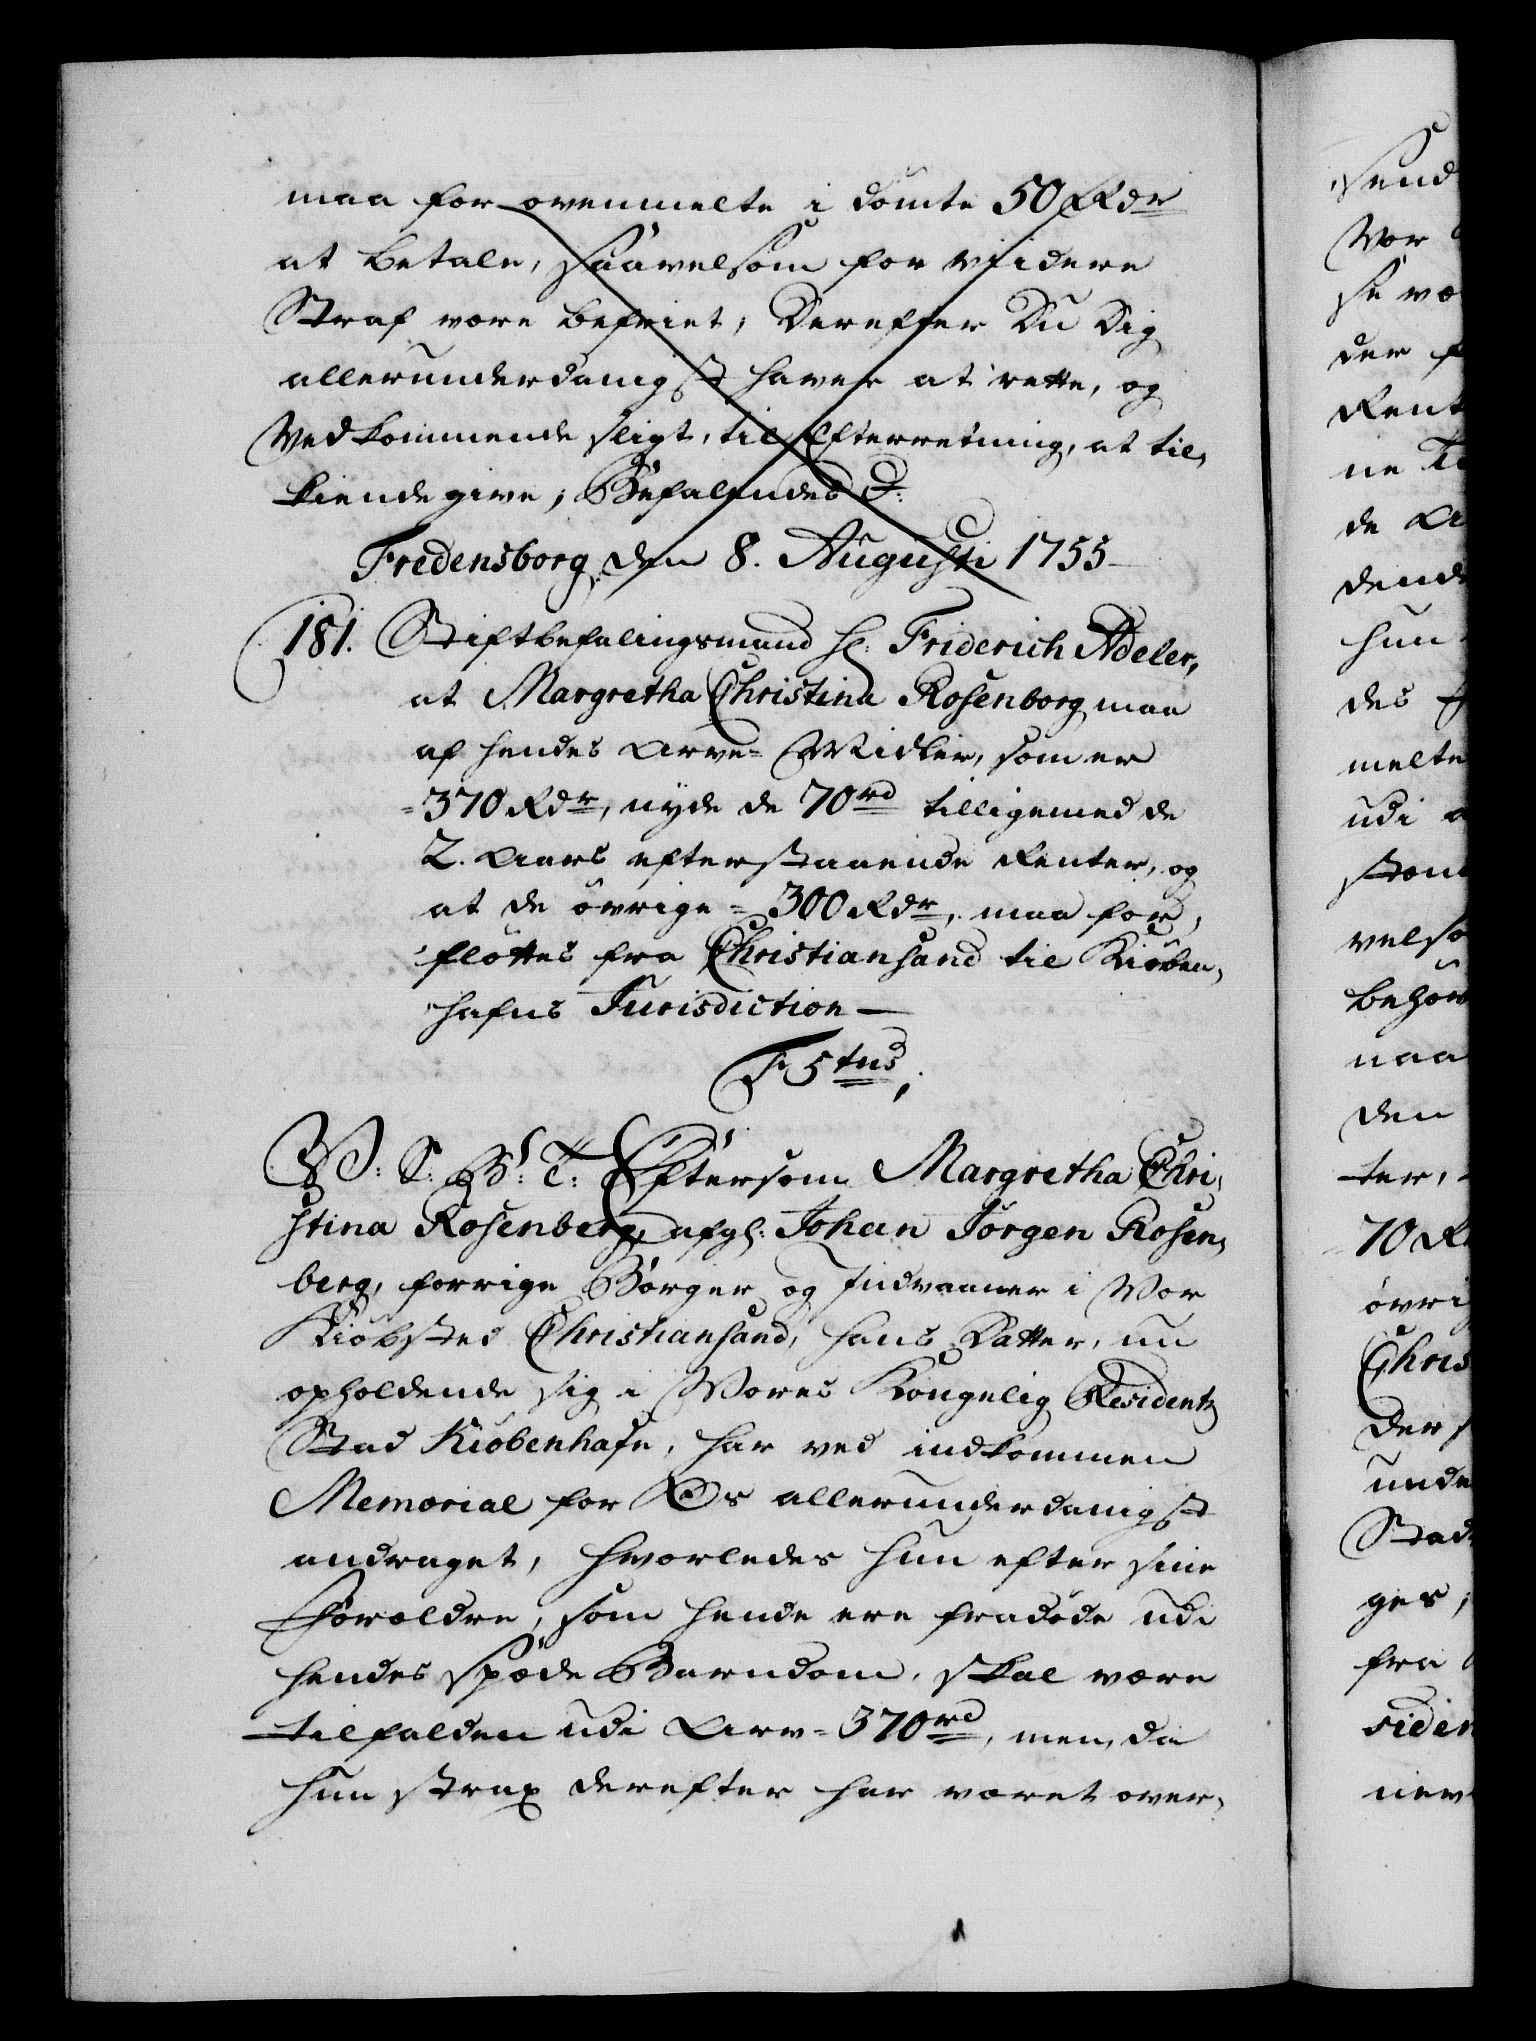 maa for ovenmelte i dömte 50 Rdr
at betale, saavelsom for viidere
Straf være befriet, Derefter Du Dig
allerunderdanigst haver at rette, og
Vedkommende sligt, til Efterretning, at til,
kiende give; Befalendes &:
Fredensborg den 8. Augusti 1755
181. Stiftbefalingsmand Hr: Friderich Adeler,
at Margretha Christina Rosenborg maa
af hendes Arve= Midler, som er
=370 Rdr, nyde de 70rd tilligemed de
2. Aars efterstaaende Renter, og
at de övrige = 300 Rdr, maa for,
flöttes fra Christiansand til Kiöben,
hafns Jurisdiction —
F 5tus,
V: S: G: T: Eftersom Margretha Chri,
stina Rosenberg, afgl: Johan Jörgen Rosen,
berg, forrige Borger og Indvaaner i Vor
Kiöbsted Christiansand, hans Datter, nu
opholdende sig i Vores Kongelig Residentz
Stad Kiöbenhafn, har ved indkommen
Memorial for Os allerunderdanigst
andraget, hvorledes hun efter sine
Forældre, som hende ere fradöde udi
hendes spæde Barndom, skal være
tilfalden udi Arv= 370rd, men, da
hun strax derefter har været over,
send
Vor
se væ
der
Rent
ne
de
dende
hun
des
melte
udi
velso
behör
naa
den
ter,
70 R
övri
Chris
Ders
unde
Stad
ges,
fra
siden